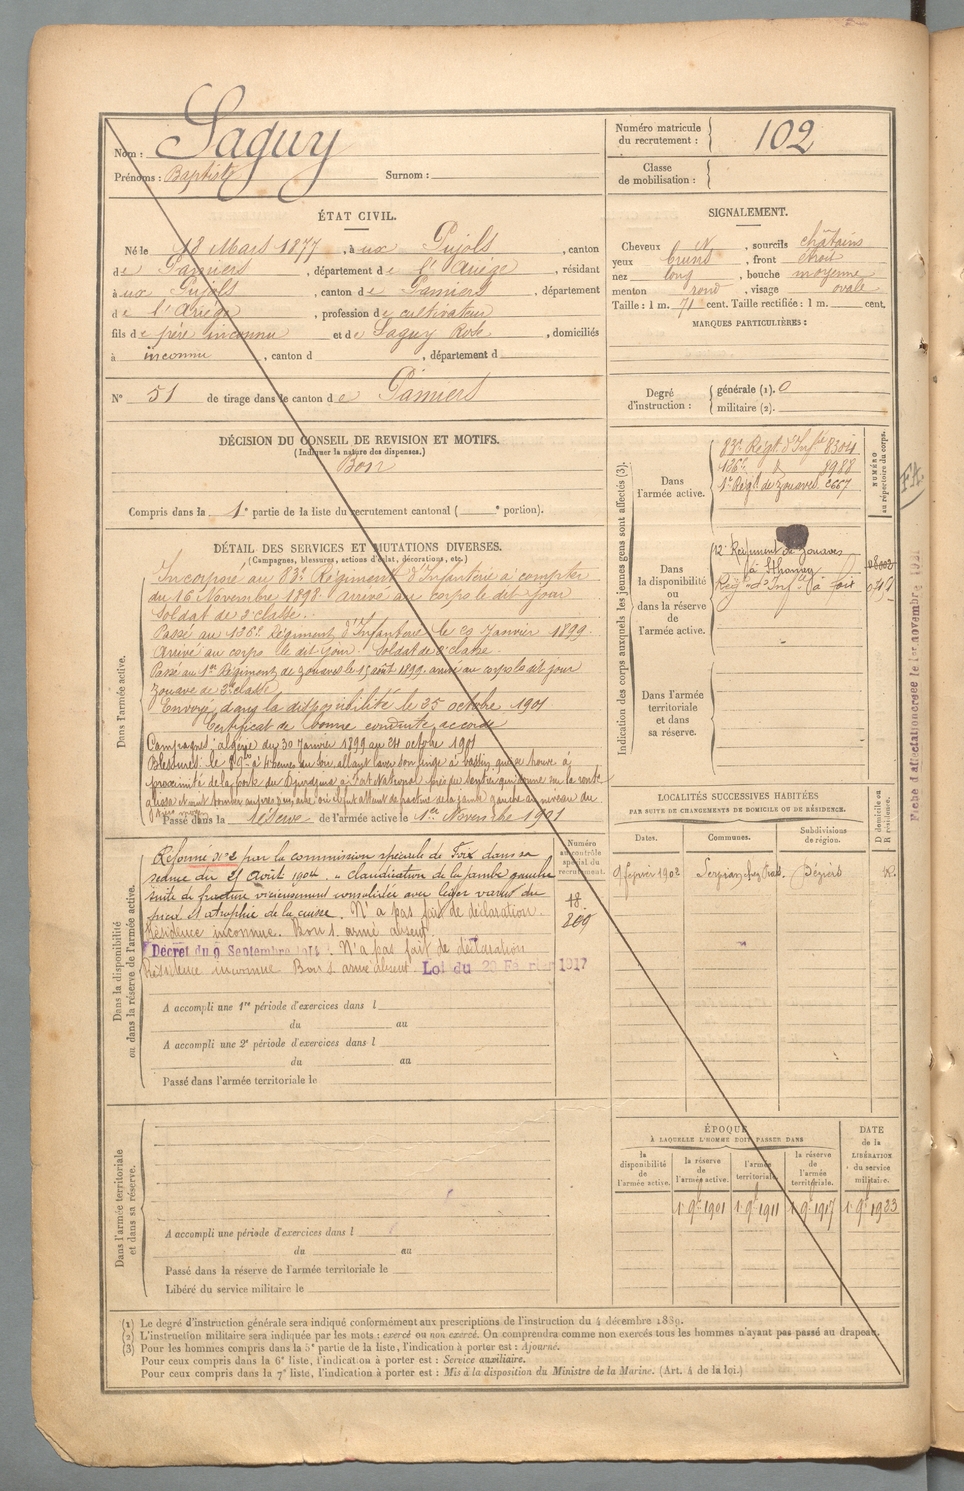 Nom : Saguy
Prénoms : Baptiste Surnom :
Numéro matricule du recrutement : 102
Classe de mobilisation :
ÉTAT CIVIL.
Né le 18 Mars 1877, à ux Pujols, canton
de Pamiers, département de l'Ariége, résidant
à ux Pujols, canton de Pamiers, département
de l'Ariége, profession de cultivateur
fils de père inconnu et de Saguy Rose, domiciliés
à inconnu, canton d , département d
N° 51 de tirage dans le canton de Pamiers
SIGNALEMENT.
Cheveux N, sourcils châtains
yeux bruns, front étroit
nez long, bouche moyenne
menton rond, visage ovale
Taille : 1 m. 71 cent. Taille rectifiée : 1 m. cent.
MARQUES PARTICULIÈRES :
Degré d'instruction : générale (1). 0
militaire (2).
DÉCISION DU CONSEIL DE REVISION ET MOTIFS.
(Indiquer la nature des dispenses.)
Bon
Compris dans la 1e partie de la liste du recrutement cantonal ( e portion).
DÉTAIL DES SERVICES ET MUTATIONS DIVERSES.
(Campagnes, blessures, actions d'éclat, décorations, etc.)
Dans l'armée active.
Incorporé au 83e Régiment d'Infanterie à compter
du 16 Novembre 1898. Arrivé au corps le dit jour
Soldat de 2e classe.
Passé au 126e Régiment d'Infanterie le 29 Janvier 1899.
Arrivé au corps le dit jour. Soldat de 2e classe.
Passé au 1er Régiment de Zouaves le 15 août 1899. arrivé au corps le dit jour
Zouave de 2e classe
Envoyé dans la disponibilité le 25 octobre 1901
Certificat de bonne conduite accordé
Campagnes : algérie du 30 Janvier 1899 au 24 octobre 1901
Blessures : le à 4 heures du soir allant laver son linge à bassin qui se trouve à
proximité de la porte du Djurdjura à Fort National sentier qui donne sur la route
glissa et vint tomber où il fut atteint de fracture de la jambe gauche au niveau du
Passé dans la réserve de l'armée active le 1er Novembre 1901
Indication des corps auxquels les jeunes gens sont affectés (3).
NUMÉRO au répertoire du corps.
Dans l'armée active.
83e Régt d'Infie 8304
126e d 8988
1er Régt de Zouaves 6667
Dans la disponibilité ou dans la réserve de l'armée active.
12e Régiment de Zouaves
Régt d'Infie à Foix
Dans l'armée territoriale et dans sa réserve.
Fiche d'affectation le 1er novembre 1921
Dans la disponibilité ou dans la réserve de l'armée active.
Numéro au contrôle spécial du recrutement.
18.
209
Réforme n° 2 par la commission spéciale de Foix dans sa
séance du 25 Août 1904. « claudication de la jambe gauche
suite de fracture vicieusement consolidée avec léger varus du
pied et atrophie de la cuisse. N'a pas fait de déclaration.
Résidence inconnue. Bon s. armé absent.
Décret du 9 Septembre 1914 : N'a pas fait de déclaration
Résidence inconnue Bon s. armé absent. Loi du 20 Février 1917
A accompli une 1re période d'exercices dans l
du au
A accompli une 2e période d'exercices dans l
du au
Passé dans l'armée territoriale le
LOCALITÉS SUCCESSIVES HABITÉES
PAR SUITE DE CHANGEMENTS DE DOMICILE OU DE RÉSIDENCE.
Dates. Communes. Subdivisions de région. D domicile ou R résidence.
9 février 1902 Béziers R.
Dans l'armée territoriale et dans sa réserve.
A accompli une période d'exercices dans l
du au
Passé dans la réserve de l'armée territoriale le
Libéré du service militaire le
ÉPOQUE
À LAQUELLE L'HOMME DOIT PASSER DANS
la disponibilité de l'armée active. la réserve de l'armée active. l'armée territoriale. la réserve de l'armée territoriale.
DATE de la LIBÉRATION du service militaire.
1 9bre 1901 1 9bre 1911 1 9bre 1917 1 9bre 1923
(1) Le degré d'instruction générale sera indiqué conformément aux prescriptions de l'instruction du 4 décembre 1889.
(2) L'instruction militaire sera indiquée par les mots : exercé ou non exercé. On comprendra comme non exercés tous les hommes n'ayant pas passé au drapeau.
(3) Pour les hommes compris dans la 5e partie de la liste, l'indication à porter est : Ajourné.
Pour ceux compris dans la 6e liste, l'indication à porter est : Service auxiliaire.
Pour ceux compris dans la 7e liste, l'indication à porter est : Mis à la disposition du Ministre de la Marine. (Art. 4 de la loi.)